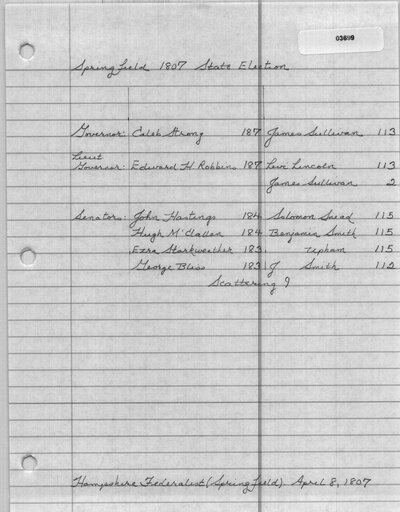 03699
Springfield 1807 State Election
Governor: Caleb Strong 187 James Sullivan 113
Lieut
Governor: Edward H. Robbins 187 Levi Lincoln 113
James Sullivan 2
Senators: John Hastings 184 Solomon Snead 115
Hugh McClallen 184 Benjamin Smith 115
Ezra Starkweather 183 Upham 115
George Bliss 183 J Smith 112
Scattering 9
Hampshire Federalist (Springfield). April 8, 1807